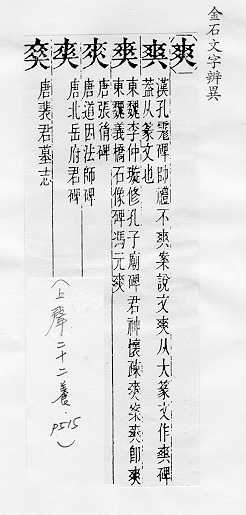 金石文字辨異
爽
爽 漢孔龗碑帥禮不爽案說文爽从大篆文作爽碑
蓋从篆文也
爽 東魏李仲璇修孔子廟碑君神懷疎爽案爽卽爽
東魏義橋石像碑馮元爽
唐張脩碑
唐道因法師碑
唐北岳府君碑
唐裴君墓志
(上聲二十二養. P515)